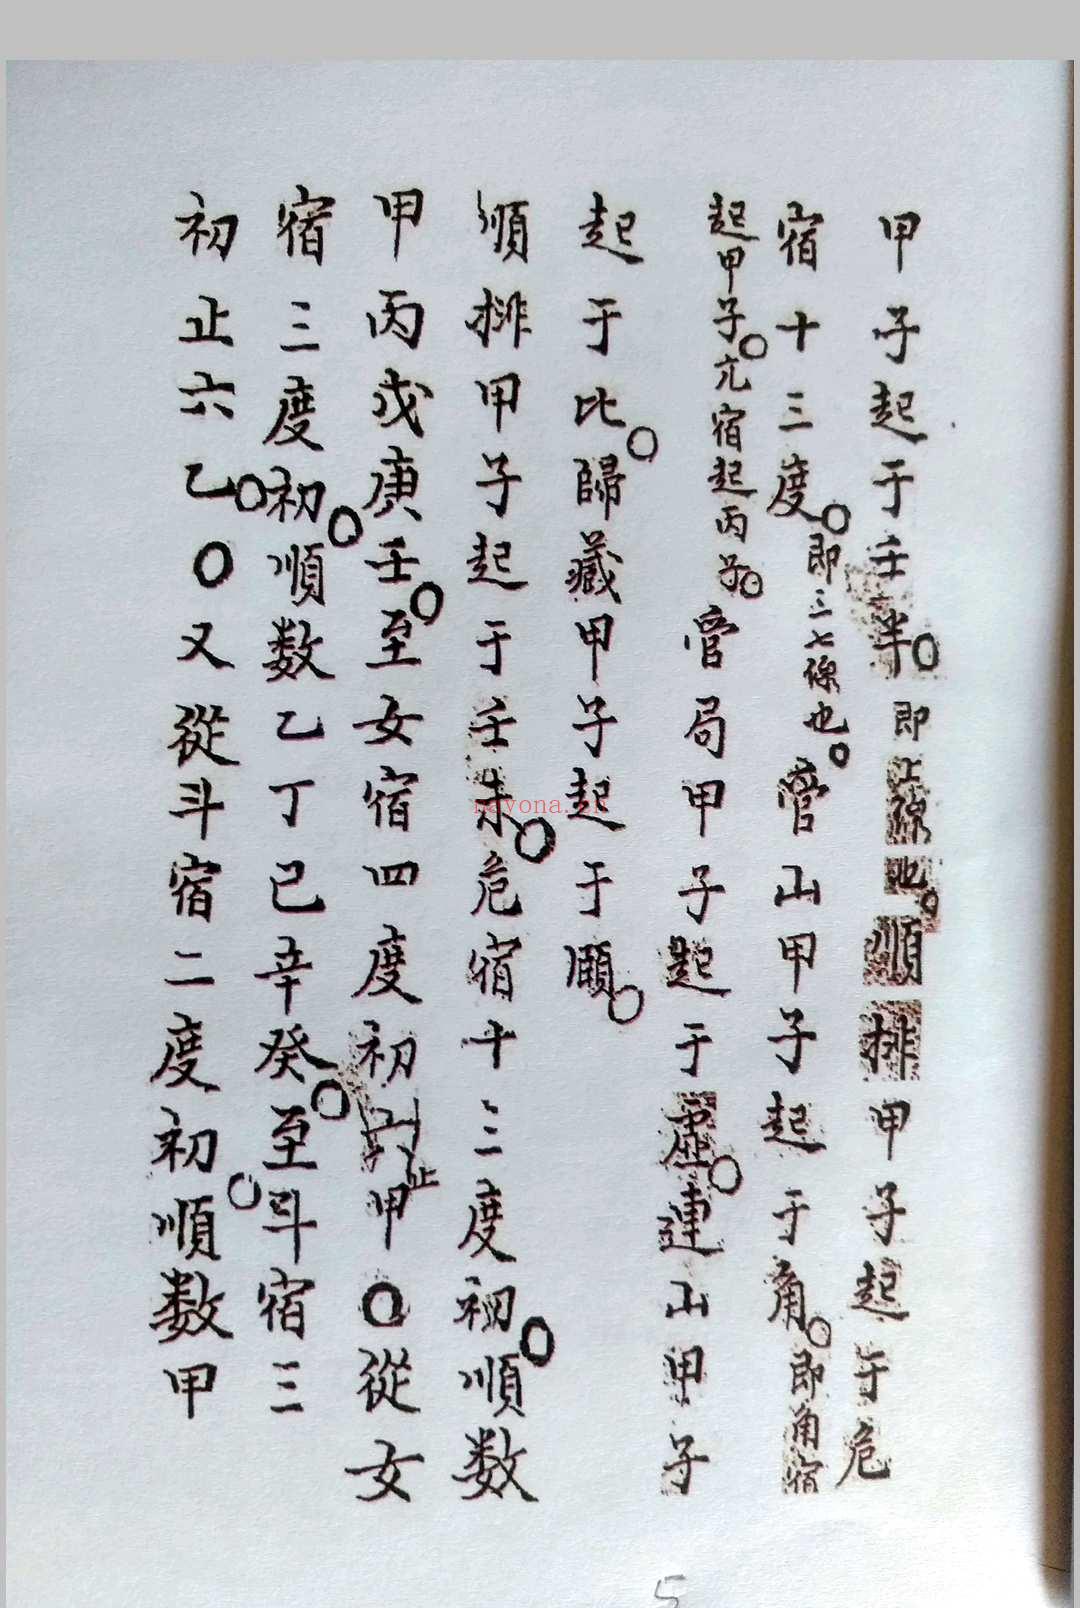 甲子起于壬半○即上線也○順排甲子起于危
宿十三度○即三七線也○管山甲子起于角○即角宿
起甲子○亢宿起丙子○管局甲子起于虛○連山甲子
起于比○歸藏甲子起于頤○
順排甲子起于壬末○危宿十三度初○順数
甲丙戊庚壬○至女宿四度初止六甲○從女
宿三度初○順数乙丁巳辛癸○至斗宿三
初止六乙○○又從斗宿二度初○順数甲
nayona.cn
5